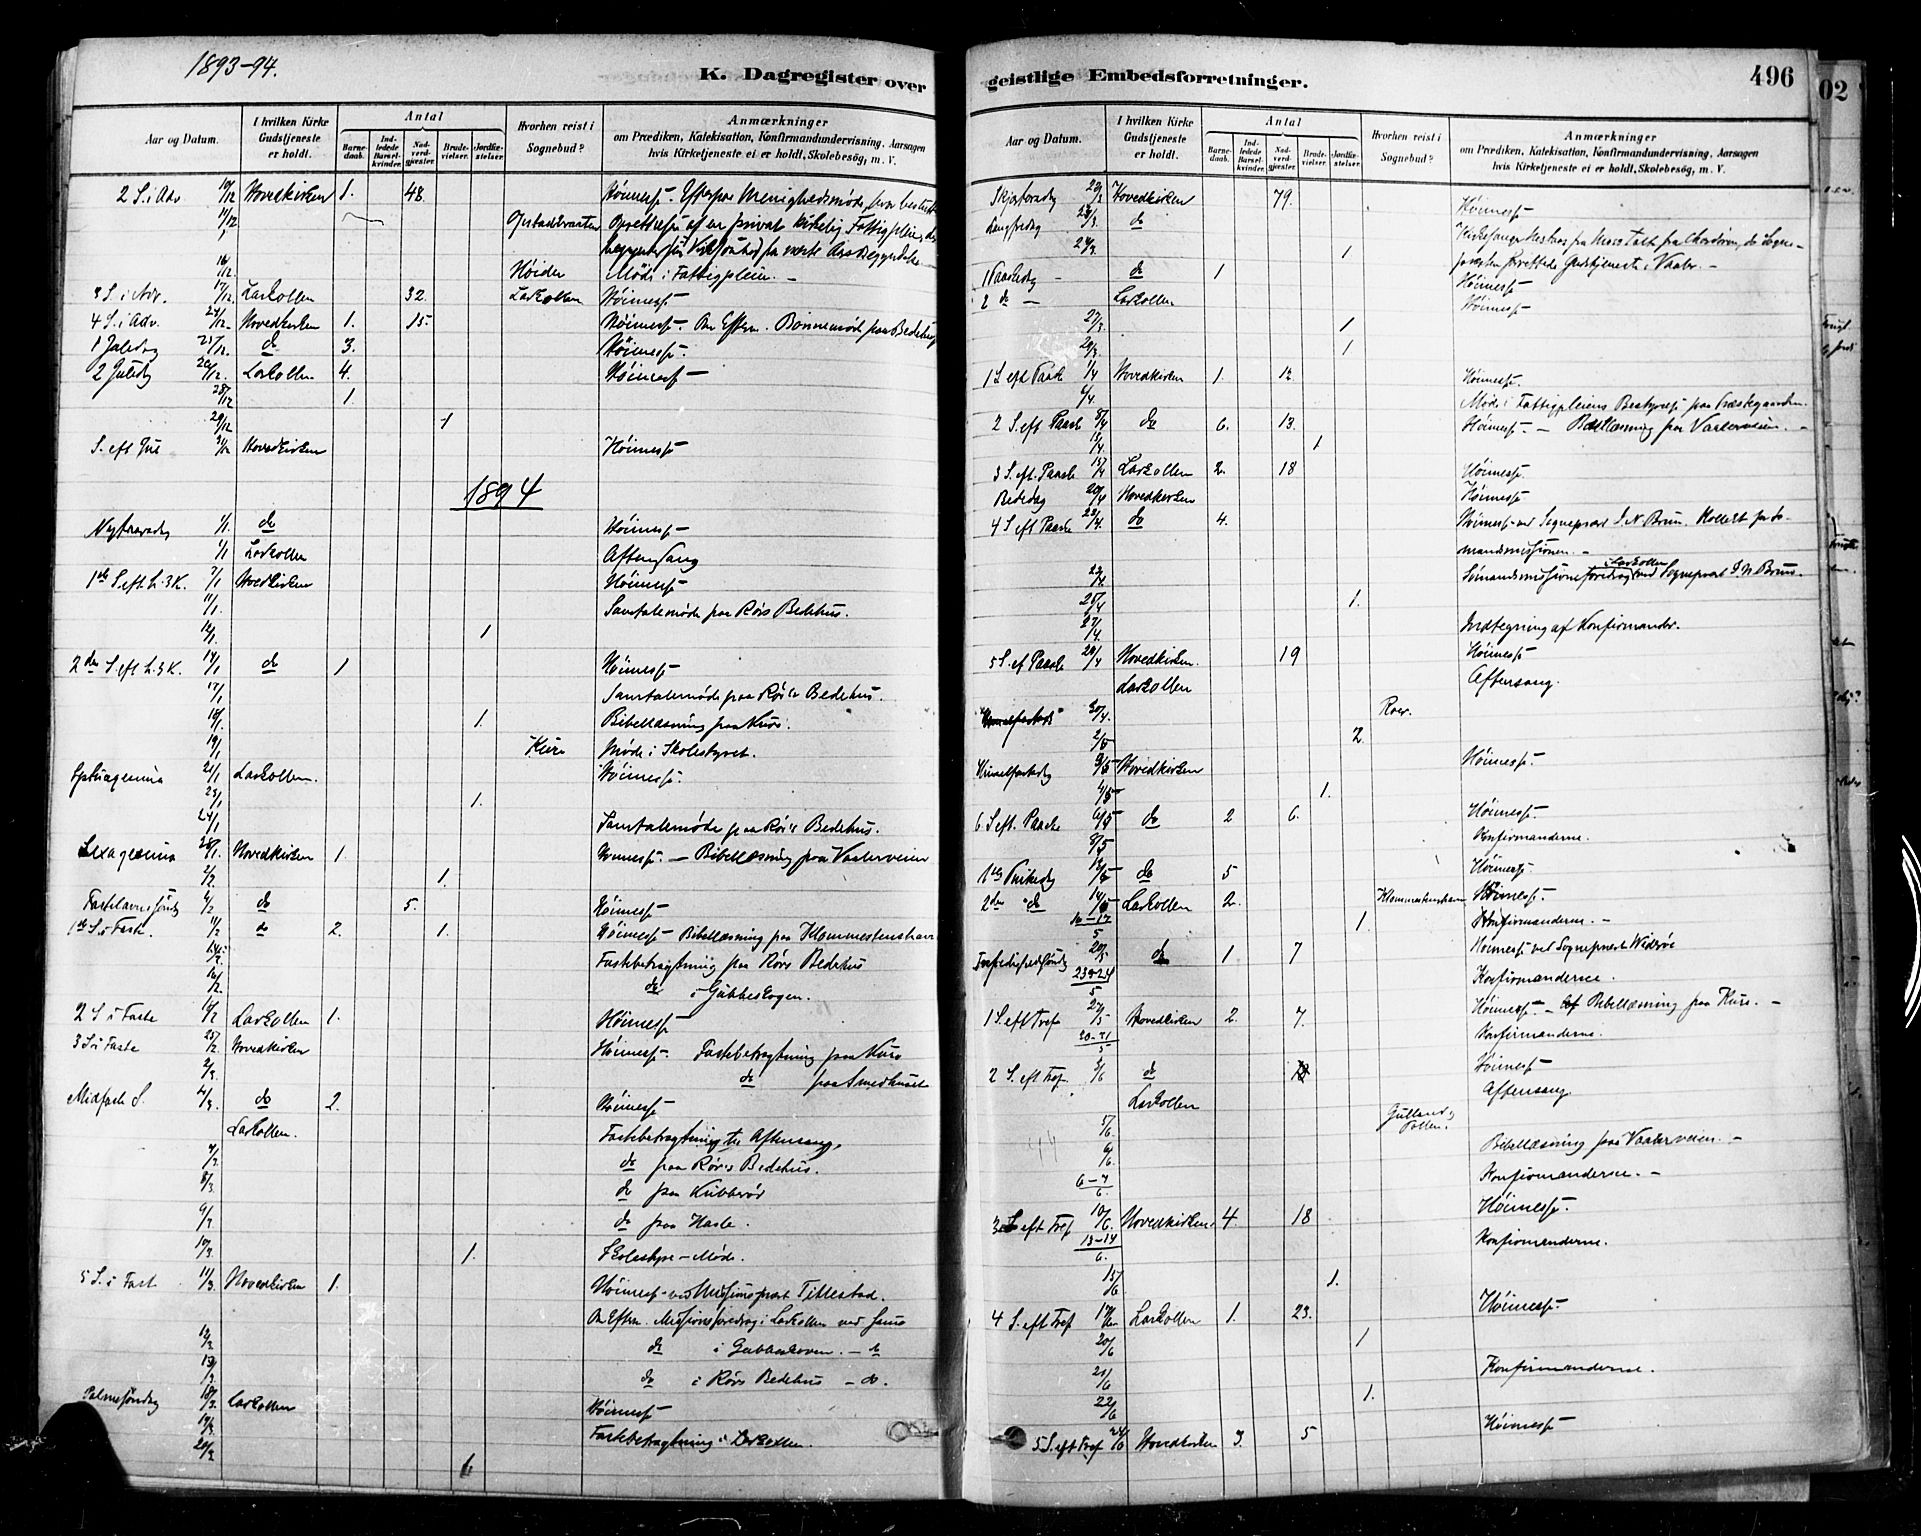 1893-94.
K. Dagregister over
Aar og Datum.
I hvilken Kirke Gudstjeneste er holdt.
Antal
Barnedaab.
Indledede Barselkvinder.
Nadverdgjester
Brudevielser.
Jordfæstelser.
Hvorhen reist i Sognebud?
Anmærkninger
om Prædiken, Katekisation, Konfirmandundervisning, Aarsagen
hvis Kirketjeneste ei er holdt, Skolebesög, m. V.
2 S. i Adv 10/12 Hovedkirken 1. 48. Höimesse. Efterpaa Menighedsmöde, hvor
Oprettelse af en privat kirkelig Fattigpleie
16/12. Höider Möde i Fattigpleien. -
3 S. i Adv. 17/12. Larkollen 32. Larkollen Höimesse
4 S. i Adv. 24/12. Hovedkirken 1. 15. Höimesse. Om Efterm. Bönnemöde paa Bedehus
1 Juledag 25/12. do 3. Höimesse.
2 Juledag 26/12. Larkollen 4. Höimesse
28/12 1.
29/12 1
S. eft Jul 31/12 Hovedkirken Höimesse
1894
Nytaarsdag 1/1. do Höimesse
1/1 Larkollen Aftensang
1ste S. eft h. 3 K. 7/1 Hovedkirken Höimesse
11/1. Samtalemöde paa Rörs Bedehus.
12/1. 1
2den S. eft h. 3 K. 14/1 do 1 Höimesse
17/1 Samtalemöde paa Rörs Bedehus.
18/1. 1. Bibellæsning paa Kure.
19/1 Kure Möde i Skolestyret.
Septuagesima 21/1 Larkollen. Höimesse.
23/1 1.
24/1 Samtalemöde paa Rörs Bedehus.
Sexagesima 28/1. Hovedkirken 1. Höimesse. - Bibellæsning paa Vaaterveien
2/2. 1.
Fastelavns söndag 4/2 do 5. Höimesse
1ste S. i Fast. 11/2 do 2. 1. Höimesse Bibellæsning paa Klommestenshavn
14/2. Fastebetragtning paa Rörs Bedehus
16/2. do i Gubbeskogen.
2 S i Faste 18/2 Larkollen 1. Höimesse
3 S i Faste 25/2 Hovedkirken Höimesse Fastebetragtning paa Kure
2/3. do paa Smedhuset
Midfaste S. 4/3. do 2. Höimesse
Larkollen. Fastebetragtning Aftensang.
7/3. do paa Rörs Bedehus.
8/3. do paa Kubberöd
9/3 do paa Hasle.
10/3. 1. Skolestyre-Möde.
5 S. i Fast 11/3. Hovedkirken 1. Höimesse ved Missionsprest Tillestad.
Om Efterm. Missionsforedrag i Larkollen ved samme
12/3. do i Gubbeskoven. - do
13/3. do i Rörs Bedehus - do.
Palmesöndag 18/3. Larkollen Höimesse
19/3. Fastebetragtning i Larkollen.
20/3
geistlige Embedsforretninger.
496
02
Aar og Datum.
I hvilken Kirke Gudstjeneste er holdt.
Antal
Barnedaab.
Indledede Barselkvinder.
Nadverdgjester
Brudevielser.
Jordfæstelser.
Hvorhen reist i Sognebud?
Anmærkninger
om Prædiken, Katekisation, Konfirmandundervisning, Aarsagen
hvis Kirketjeneste ei er holdt, Skolebesög, m. V.
Skjærtorsdag 22/3 Hovedkirken 79. Höimesse
Langfredag 23/3. do
24/3. 1 forrettede Gudstjeneste i Vaaler. -
1 Paaskedag - do 1 Höimesse
2 do - Larkollen Höimesse
27/3. 1
29/3. 1
1 S. eft Paask 1/4 Hovedkirken 1. 12. Höimesse.
6/4. Möde i Fattigpleiens Bestyrelse paa Præstegaarden.
2 S. eft Paask 8/4 do 6. 13. Höimesse. - Bibellæsning paa Vaaterveien. -
13/4. 1
3 S. eft. Paask 15/4 Larkollen 2. 18 Höimesse.
Bededag 20/4 Hovedkirken Höimesse
4 S eft Paask 22/4. do 4. Höimesse ved Sognepræst J. N. Brun. Kollekt for Sö-
mandsmissionen. -
23/4. Sömandsmissionsforedrag Larkollen ved Sognepræst J. N. Brun.
25/4 1.
27/4. Indtegning af Konfirmander.
5 S. ef Paask 29/4 Hovedkirken. 19 Höimesse
Larkollen Aftensang.
30/4. Roer.
2/5 2.
Himmelfartsdag 3/5 Hovedkirken Höimesse.
4/5 1.
6 S. eft. Paask 6/5 do 2 6. Höimesse.
8/5 Konfirmanderne.
1ste Pinkedag 13/5 do 5 Höimesse.
2den do 14/5 Larkollen 2. Klommestenshavn Höimesse.
16-17/5 1. Konfirmanderne. -
Trefoldighedssöndag 20/5 do 1 7 Höimesse ved Sognepræst Wideröe
23 & 24/5 Konfirmanderne.
1 S. eft Tref 27/5 Hovedkirken 2. 7. Höimesse. - Bibellæsning paa Kure. -
30-31/5 Konfirmanderne.
2 S. eft Tref 3/6 do Höimesse
Larkollen Aftensang.
5/6.
6/6. Bibellæsning paa Vaaterveien. -
6-7/6. Konfirmanderne. -
3 S eft Tref 10/6. Hovedkirken. 4. 18 Höimesse.
13-14/6. Konfirmanderne.
15/6 1.
4 S. eft Tref 17/6 Larkollen 1. 23. Höimesse.
20/6 1
21/6 Konfirmanderne.
22/6 1.
5 S. eft Tref 24/6 Hovedkirken 3. 5 Höimesse